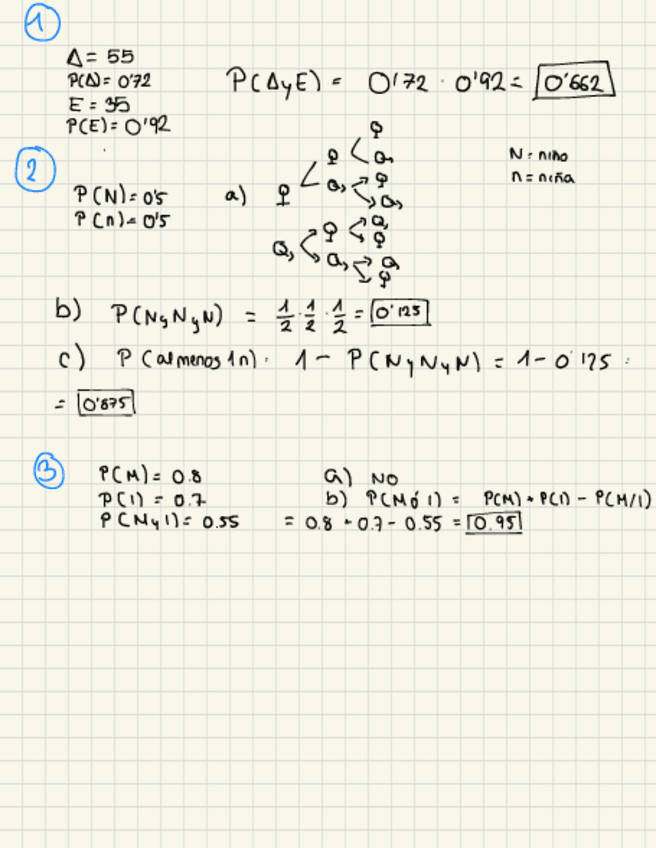 1
Δ = 55
P(Δ) = 0'72
P(Δ y E) = 0'72 · 0'92 = 0'662
E = 35
P(E) = 0'92
2
N = niño
n = niña
P(N) = 0'5
P(n) = 0'5
a)
b) P(N y N y N) = 1/2 · 1/2 · 1/2 = 0'125
c) P(al menos 1n) = 1 - P(N y N y N) = 1 - 0'125 =
= 0'875
3
P(M) = 0.8
a) NO
P(I) = 0.7
b) P(M ó I) = P(M) + P(I) - P(M/I)
P(M y I) = 0.55
= 0.8 + 0.7 - 0.55 = 0.95